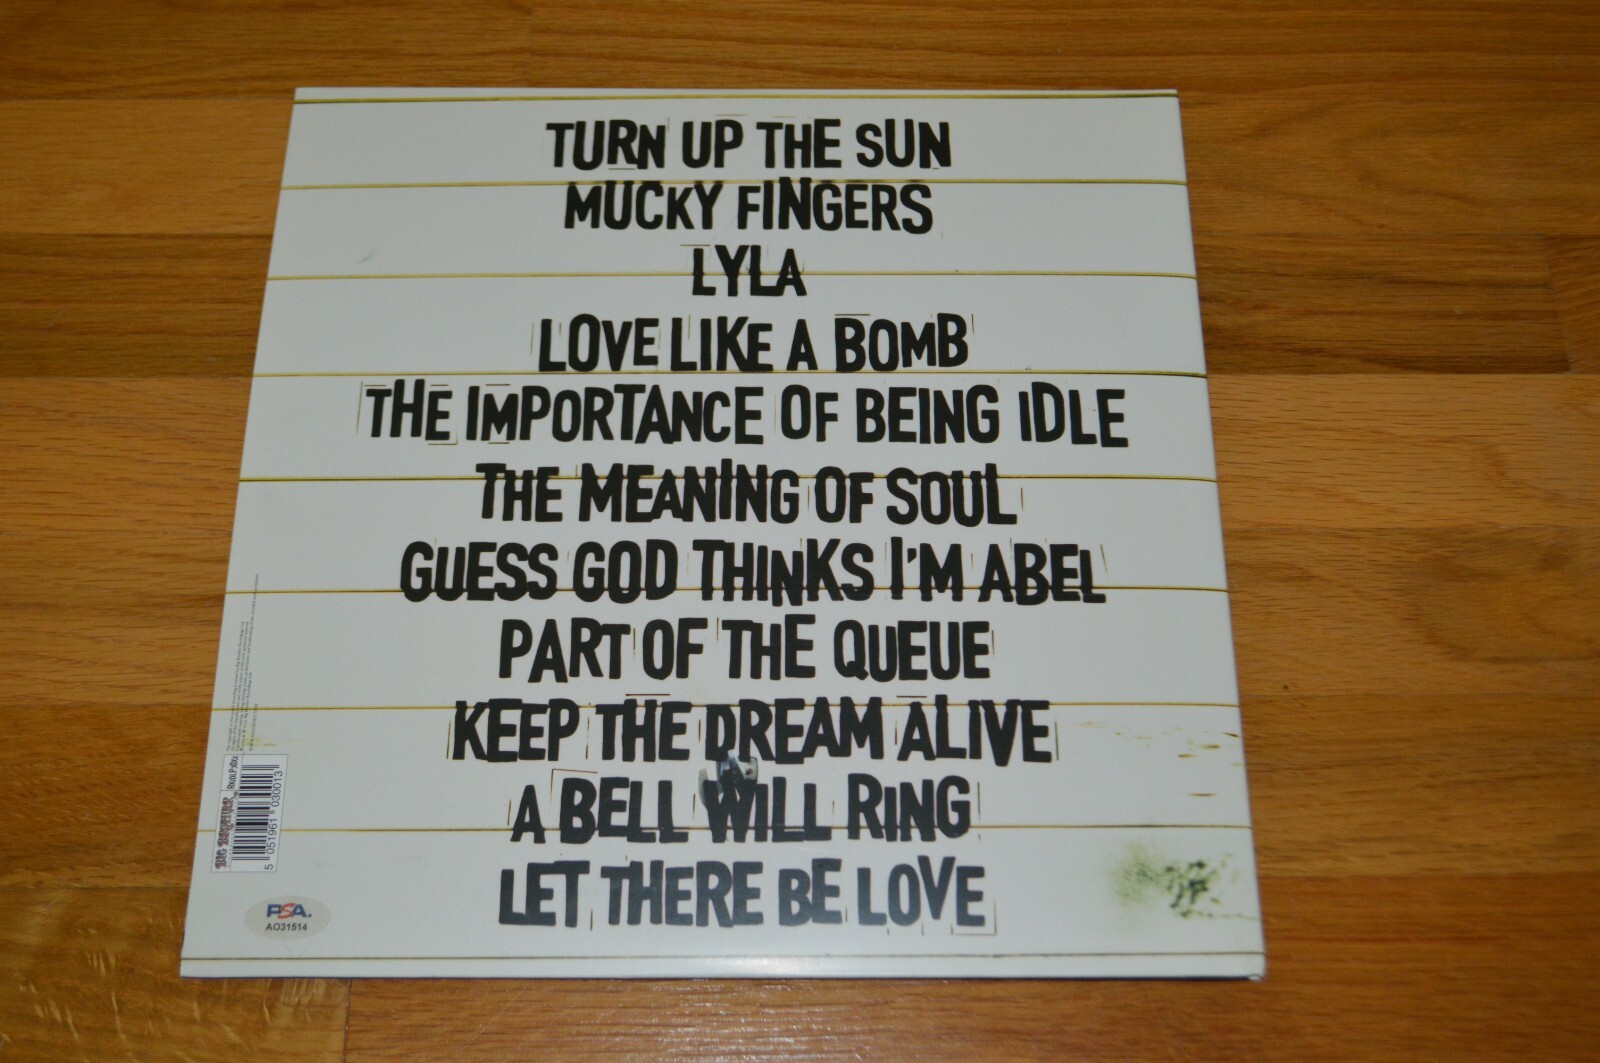 TURN UP THE SUN
MUCKY FINGERS
LYLA
LOVE LIKE A BOMB
THE IMPORTANCE OF BEING IDLE
THE MEANING OF SOUL
GUESS GOD THINKS I'M ABEL
PART OF THE QUEUE
KEEP THE DREAM ALIVE
A BELL WILL RING
LET THERE BE LOVE
BIG BROTHER
RKIDLP30X
5 051961 030013
PSA.
AO31514